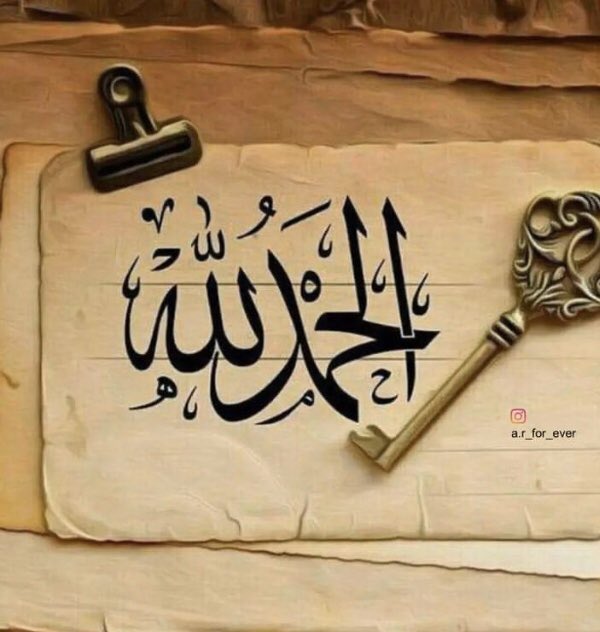 الحمد لله
a.r_for_ever